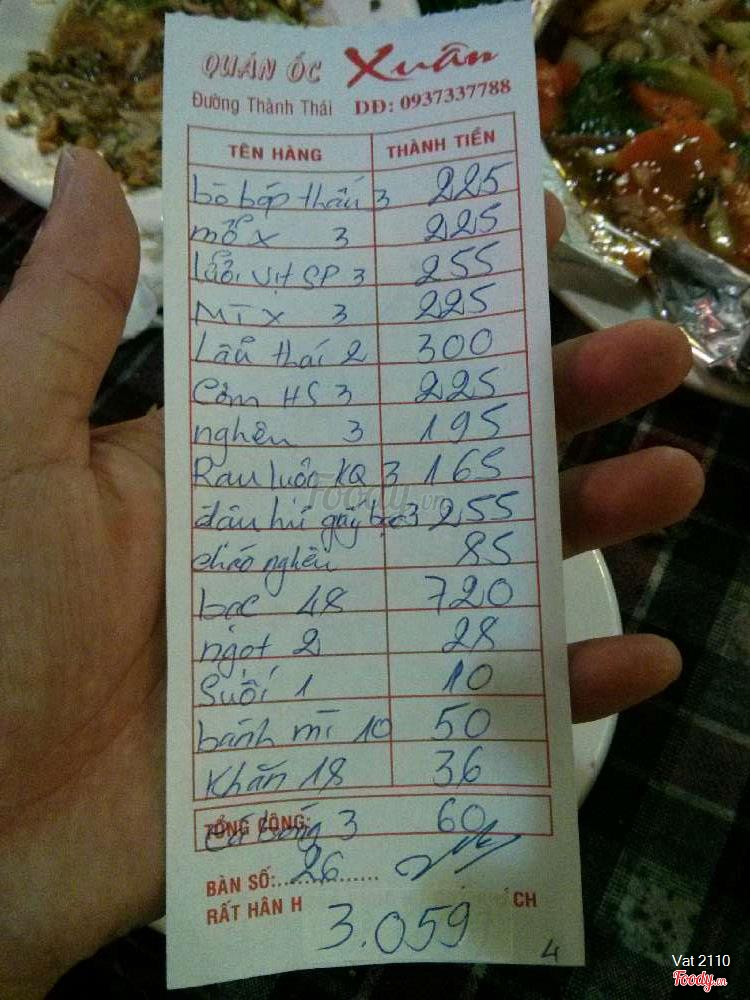 QUÁN ỐC Xuân
Đường Thành Thái DĐ: 0937337788
TÊN HÀNG THÀNH TIỀN
bò bóp thấu 3 225
mổ X 3 225
lưỡi vịt SP 3 255
MTX 3 225
Lẩu thái 2 300
Cơm HS 3 225
nghêu 3 195
Rau luộc KQ 3 165
đậu hủ giấy bạc 3 255
cháo nghêu 85
bạc 48 720
ngọt 2 28
Suối 1 10
bánh mì 10 50
Khăn 18 36
TỔNG CỘNG: 3 60
BÀN SỐ: 26
RẤT HÂN H CH
3.059
4
Foody.vn
Vat 2110
Foody.vn